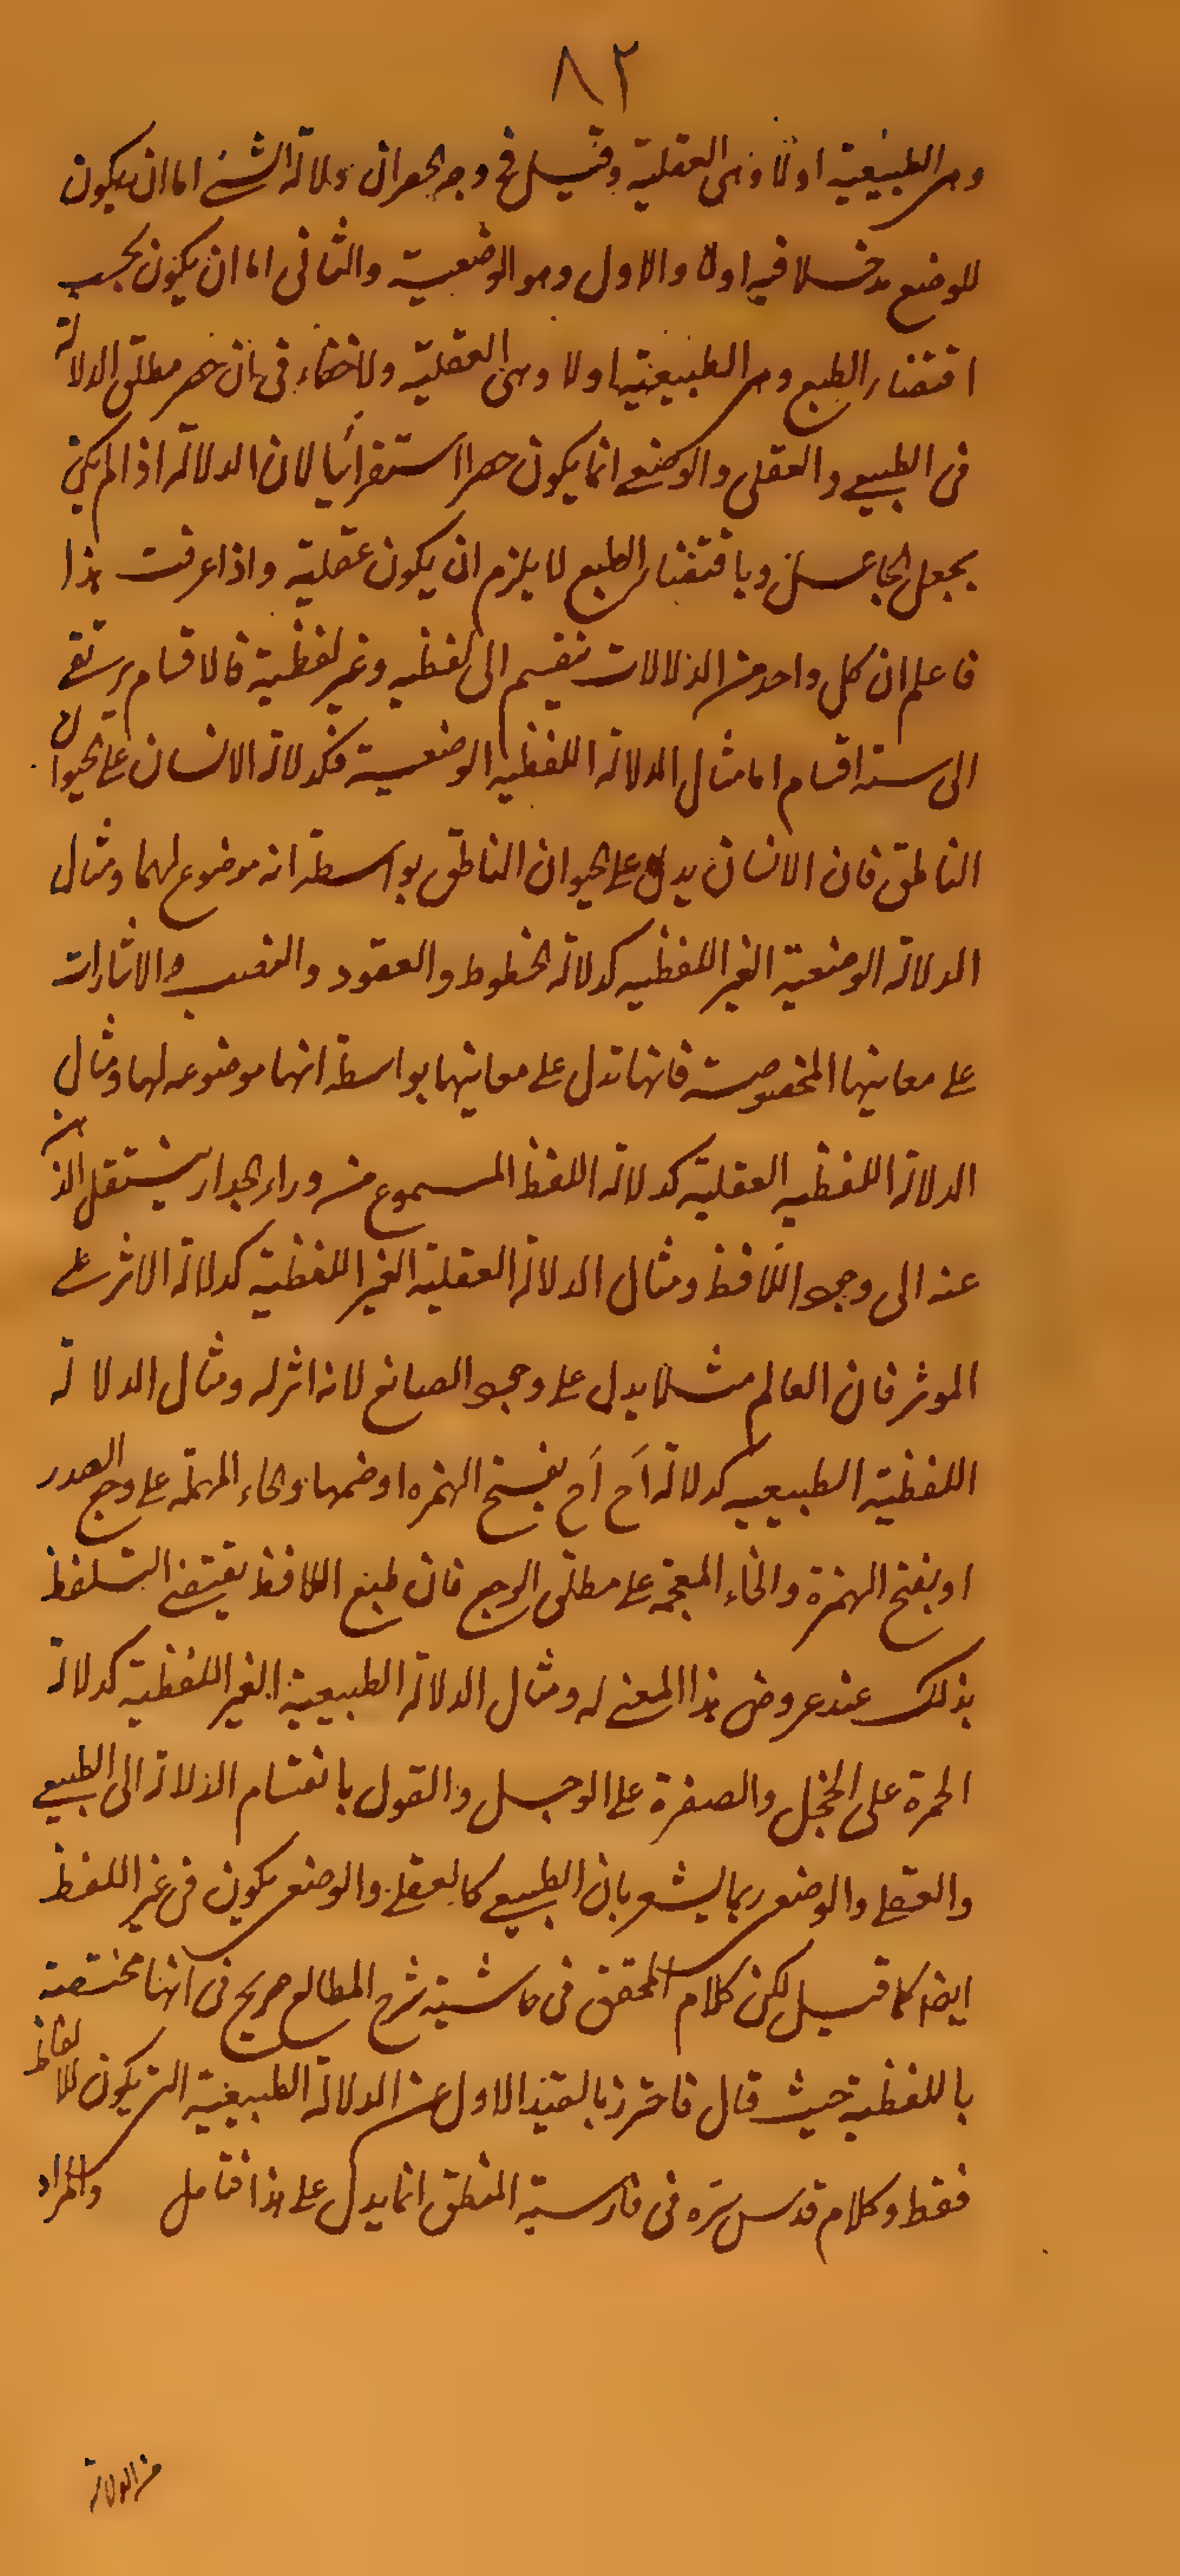 ٨٢
وهى الطبيعية اولا وهى العقلية وقيل فى وجه الحصر ان دلالة الشئ اما ان يكون
للوضع مدخلا فيه اولا والاول وهو الوضعية والثانى اما ان يكون بحسب
اقتضاء الطبع وهى الطبيعية اولا وهى العقلية ولا خفاء فى ان حصر مطلق الدلالة
فى الطبيعى والعقلى والوضعى انما يكون حصرا استقرائيا لان الدلالة اذا لم يكن
بجعل الجاعل وباقتضاء الطبع لا يلزم ان يكون عقلية واذا عرفت هذا
فاعلم ان كل واحد من الدلالات ينقسم الى لفظيه وغير لفظية فالاقسام يرتقى
الى ستة اقسام اما مثال الدلالة اللفظيه الوضعية فكدلالة الانسان على الحيوان
الناطق فان الانسان يدل على الحيوان الناطق بواسطة انه موضوع لهما ومثال
الدلالة الوضعية الغير اللفظيه كدلالة الخطوط والعقود والنصب والاشارات
على معانيها المخصوصة فانها تدل على معانيها بواسطة انها موضوعه لها ومثال
الدلالة اللفظيه العقلية كدلالة اللفظ المسموع من وراء الجدار ينتقل الذهن
عنه الى وجود اللافظ ومثال الدلالة العقلية الغير اللفظية كدلالة الاثر على
الموثر فان العالم مثلا يدل على وجود الصانع لانه اثر له ومثال الدلالة
اللفظية الطبيعيه كدلالة اَح اَح بفتح الهمزه او ضمها والحاء المهملة على وجع الصدر
او بفتح الهمزة والخاء المعجمة على مطلق الوجع فان طبع اللافظ يقتضى التلفظ
بذلك عند عروض هذا المعنى له ومثال الدلالة الطبيعية الغير اللفظية كدلالة
الحمرة على الخجل والصفرة على الوجل والقول بانقسام الدلالة الى الطبيعى
والعقلى والوضعى ربما يشعر بان الطبيعى كالعقلى والوضعى يكون فى غير اللفظ
ايضا كما قيل لكن كلام المحقق فى حاشية شرح المطالع صريح فى انها مختصة
باللفظية حيث قال فاحترز بالقيد الاول عن الدلالة الطبيعية التى يكون للالفاظ
فقط وكلام قدس سره فى فارسية المنطق انما يدل على هذا فتامل والمراد
من الدلالة